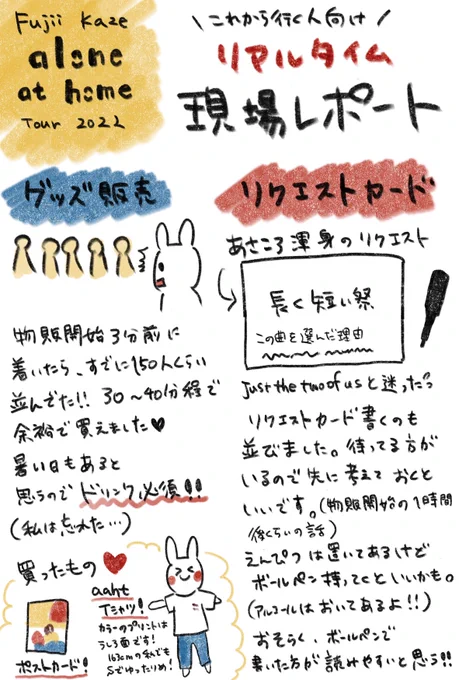 Fujii Kaze
alone
at home
Tour 2022
\ これから行く人向け /
リアルタイム
現場レポート
グッズ販売
物販開始3分前に
着いたら、すでに150人くらい
並んでた!! 30〜40分程で
余裕で買えました♥
暑い日もあると
思うので ドリンク必須!!
(私は忘れた…)
買ったもの♥
ポストカード!
aaht
Tシャツ!
カラーのプリントは
うしろ面です!
163cmの私でも
Sでゆったりめ!
リクエストカード
あさころ渾身のリクエスト
長く短い祭
この曲を選んだ理由
Just the two of usと迷った
リクエストカード書くのも
並びました。待ってる方が
いるので先に考えておくと
いいです。(物販開始の1時間
後くらいの話)
えんぴつは置いてあるけど
ボールペン持ってくといいかも。
(アルコールはおいてあるよ!!)
おそらく、ボールペンで
書いた方が読みやすいと思う!!